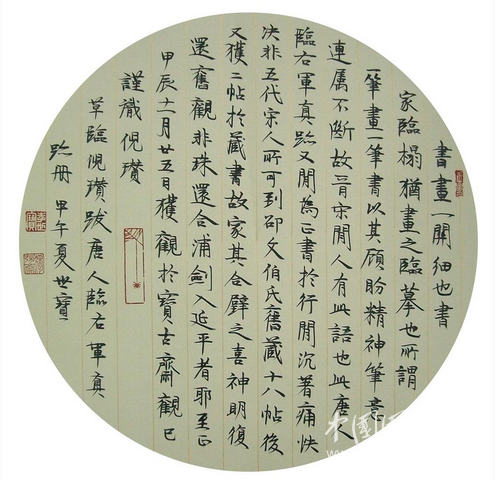 書畫一關紐也書
家臨搨猶畫之臨摹也所謂
一筆畫一筆書以其顧盼精神筆意
連属不斷故晉宋間人有此語也此唐人
臨右軍真跡又間為正書於行間沉著痛快
决非五代宋人所可到邵文伯氏舊藏十八帖後
又獲二帖於藏書故家其合璧之喜神明復
還舊觀非珠還合浦劍入延平者耶至正
甲辰十二月廿五日獲觀於寶古齋觀已
謹識倪瓚
草臨倪瓚跋唐人臨右軍真
跡册 甲午夏世寶